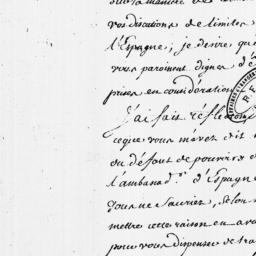 sur la maniere de
vos discutions de limites
l'Espagne, je desire que
vous paroissent dignes d'
prises en consideration
J'ai fait réflexion
ce que vous m'avez dit
du défaut de pouvoirs
l'ambassad.r d'Espagne
vous ne sauriez, selon
mettre cette raison en av
pour vous dispenser de tra